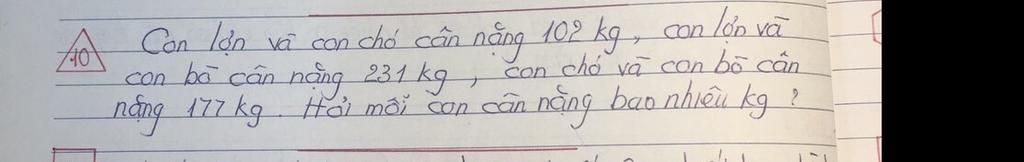 10 Con lớn và con chó cân nặng 102 kg, con lớn và
con bò cân nặng 231 kg, con chó và con bò cân
nặng 177 kg. Hỏi mỗi con cân nặng bao nhiêu kg?